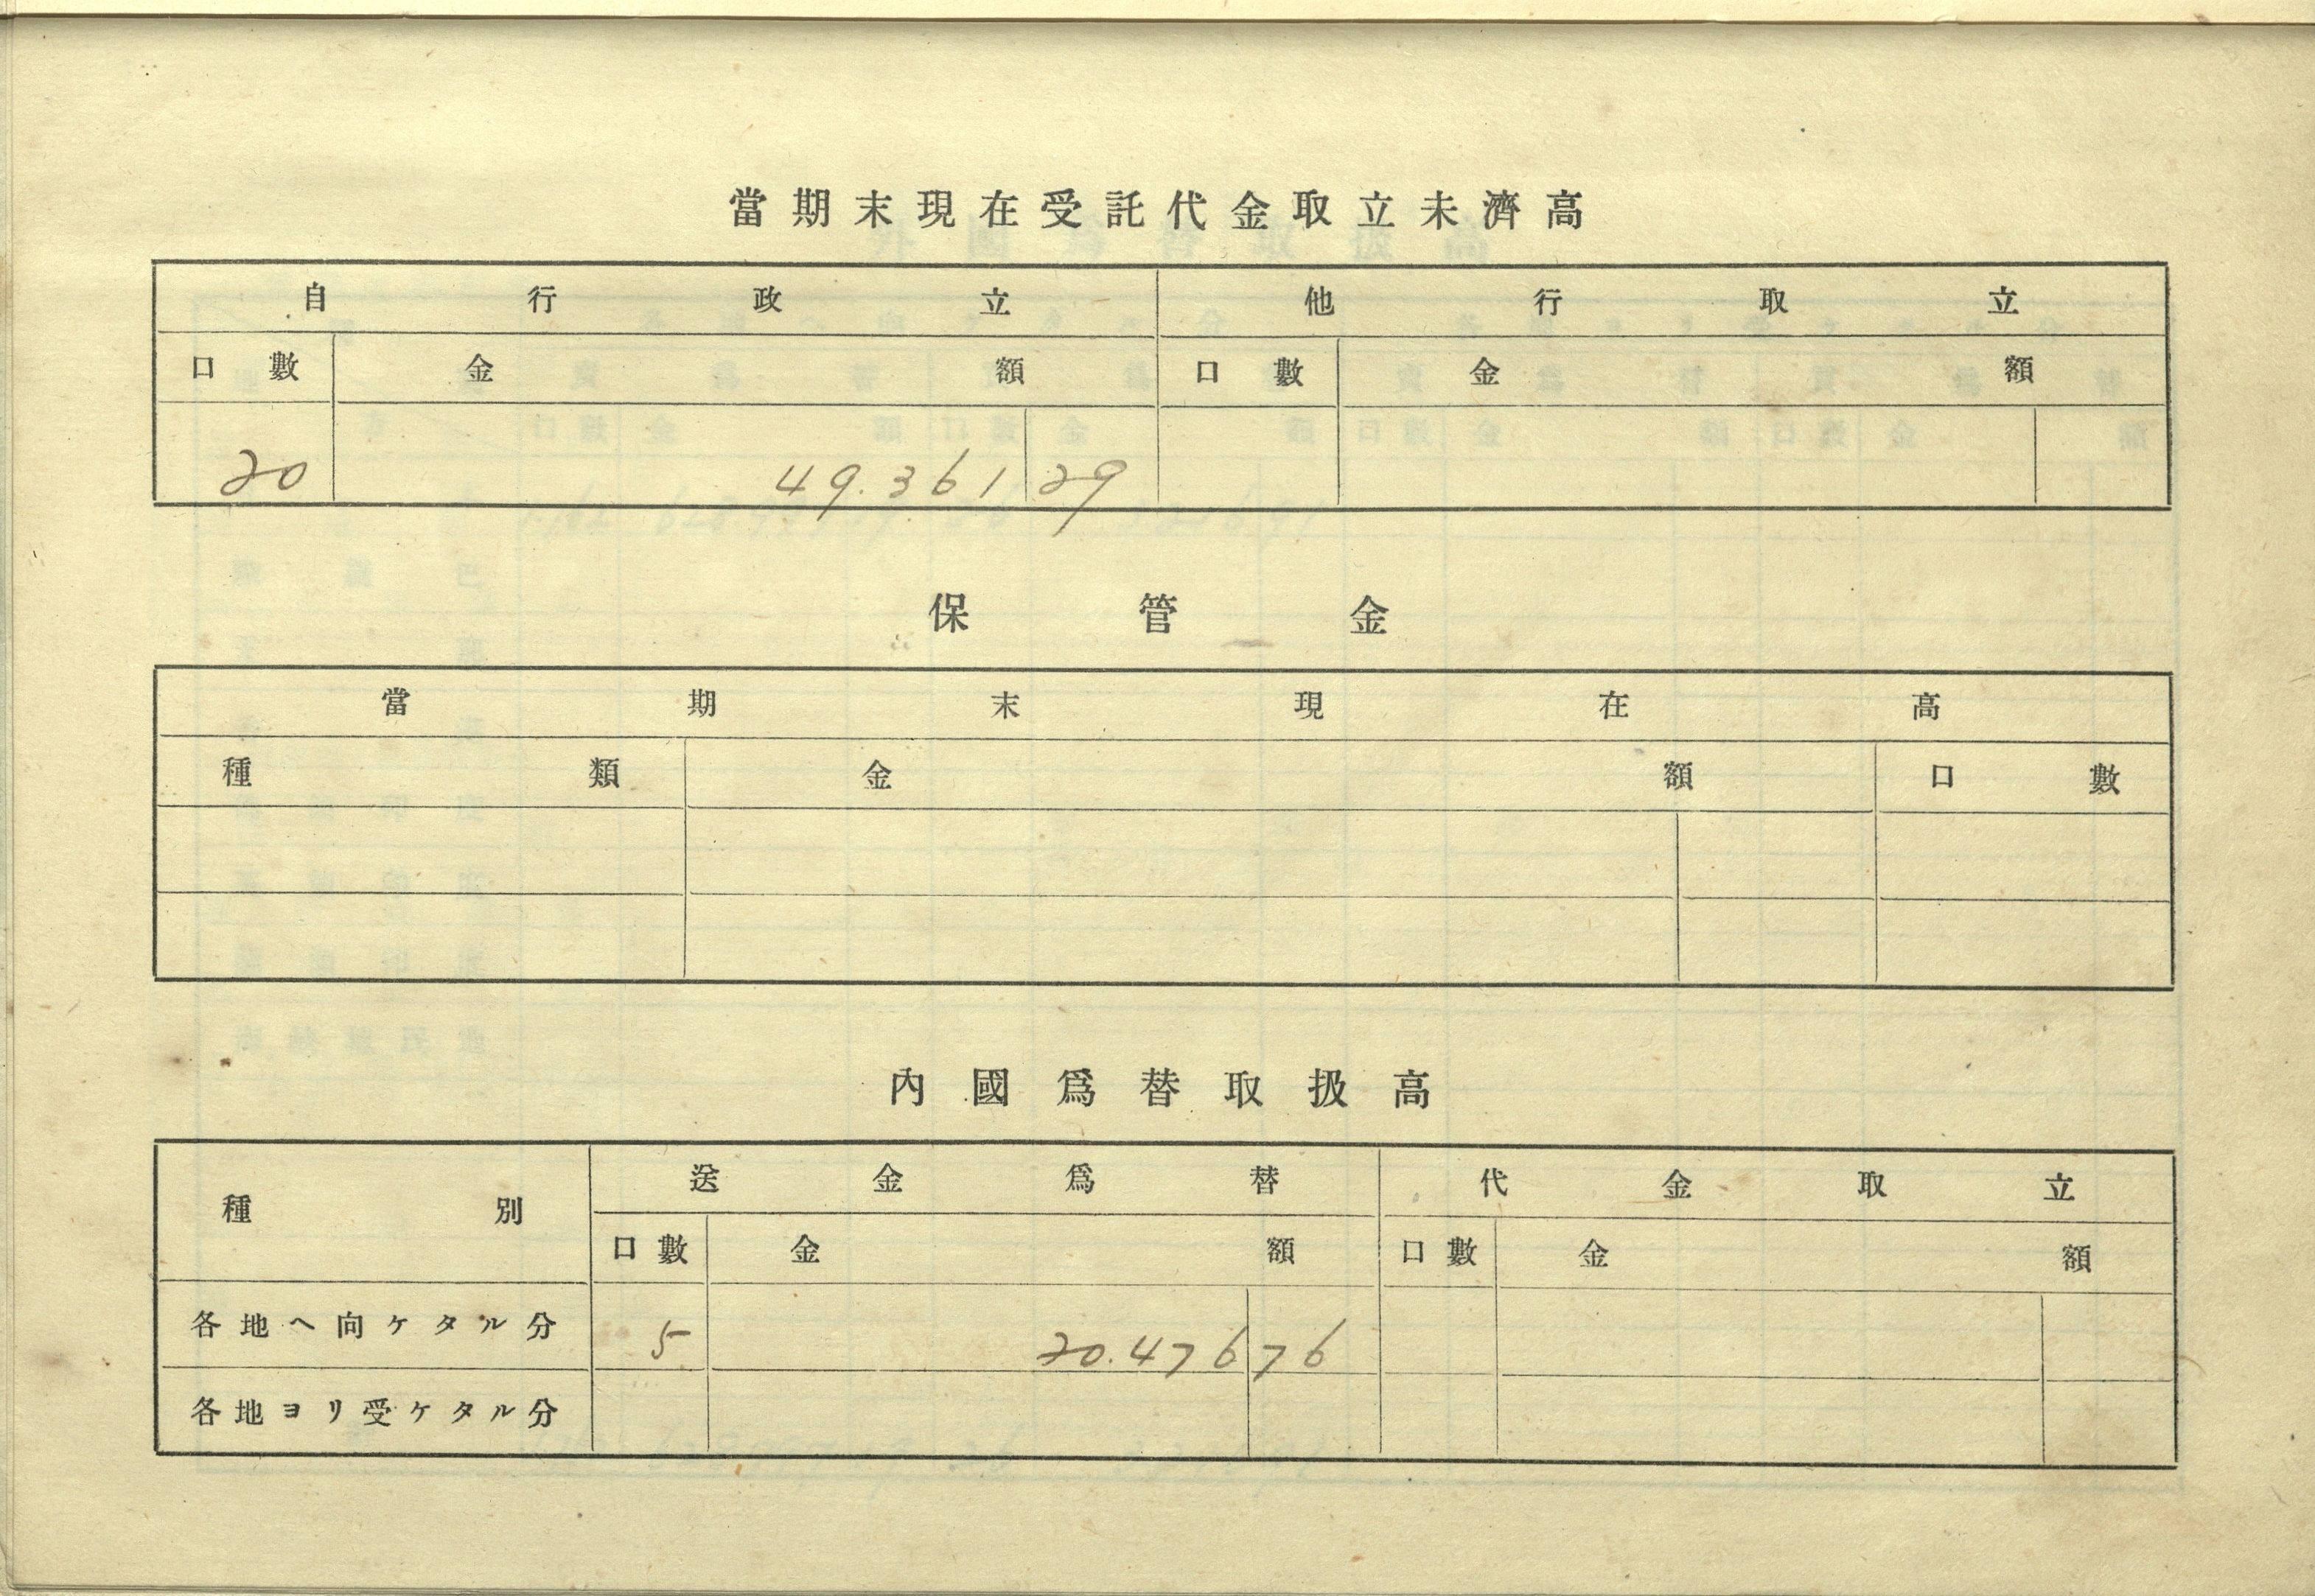 當期末現在受託代金取立未濟高
自行政立 他行取立
口數 金額 口數 金額
20 49.361 29
保管金
當期末現在高
種類 金額 口數
內國爲替取扱高
種別 送金爲替 代金取立
口數 金額 口數 金額
各地ヘ向ケタル分 5 20.476 76
各地ヨリ受ケタル分